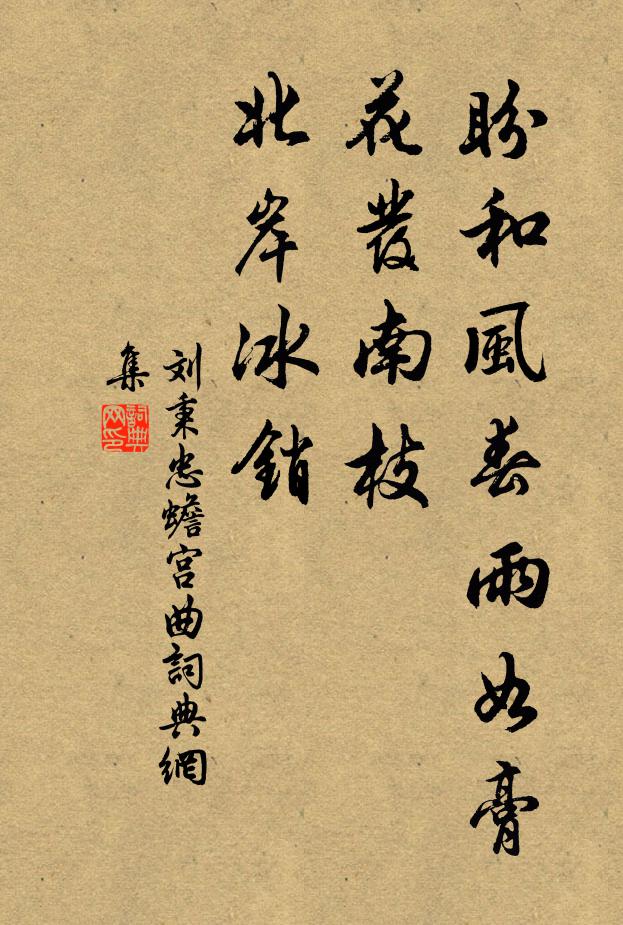 盼和風春雨如膏
花發南枝
北岸冰銷
刘秉忠蟾宫曲詞典網
集
詞典
网印